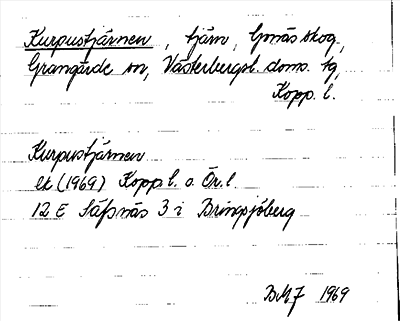 Kurpustjärnen, tjärn, Gonäs skog,
Grangärde sn, Västerbergsl. doms. tg,
Kopp. l.
Kurpustjärnen
ek (1969) Kopp. l. o. Ör. l.
12 E Säfsnäs 3 i Bringsjöberg
BMJ 1969